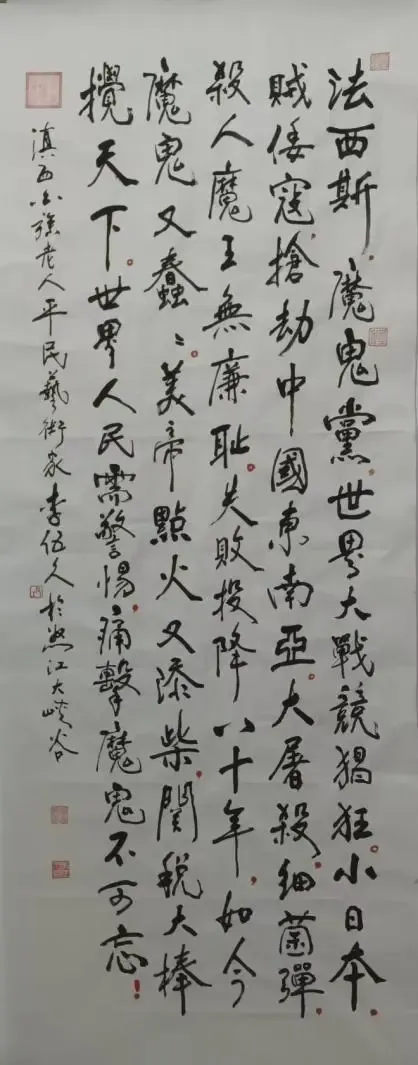 法西斯，魔鬼黨，世界大戰競猖狂。小日本，
贼倭寇，搶劫中國東南亞。大屠殺，细菌彈，
殺人魔王無廉耻。失敗投降八十年，如今
魔鬼又蠢〻。美帝點火又添柴。関税大棒
攪天下。世界人民需警惕，痛擊魔鬼不可忘！
滇西老人平民藝術家李伍久於怒江大峽谷